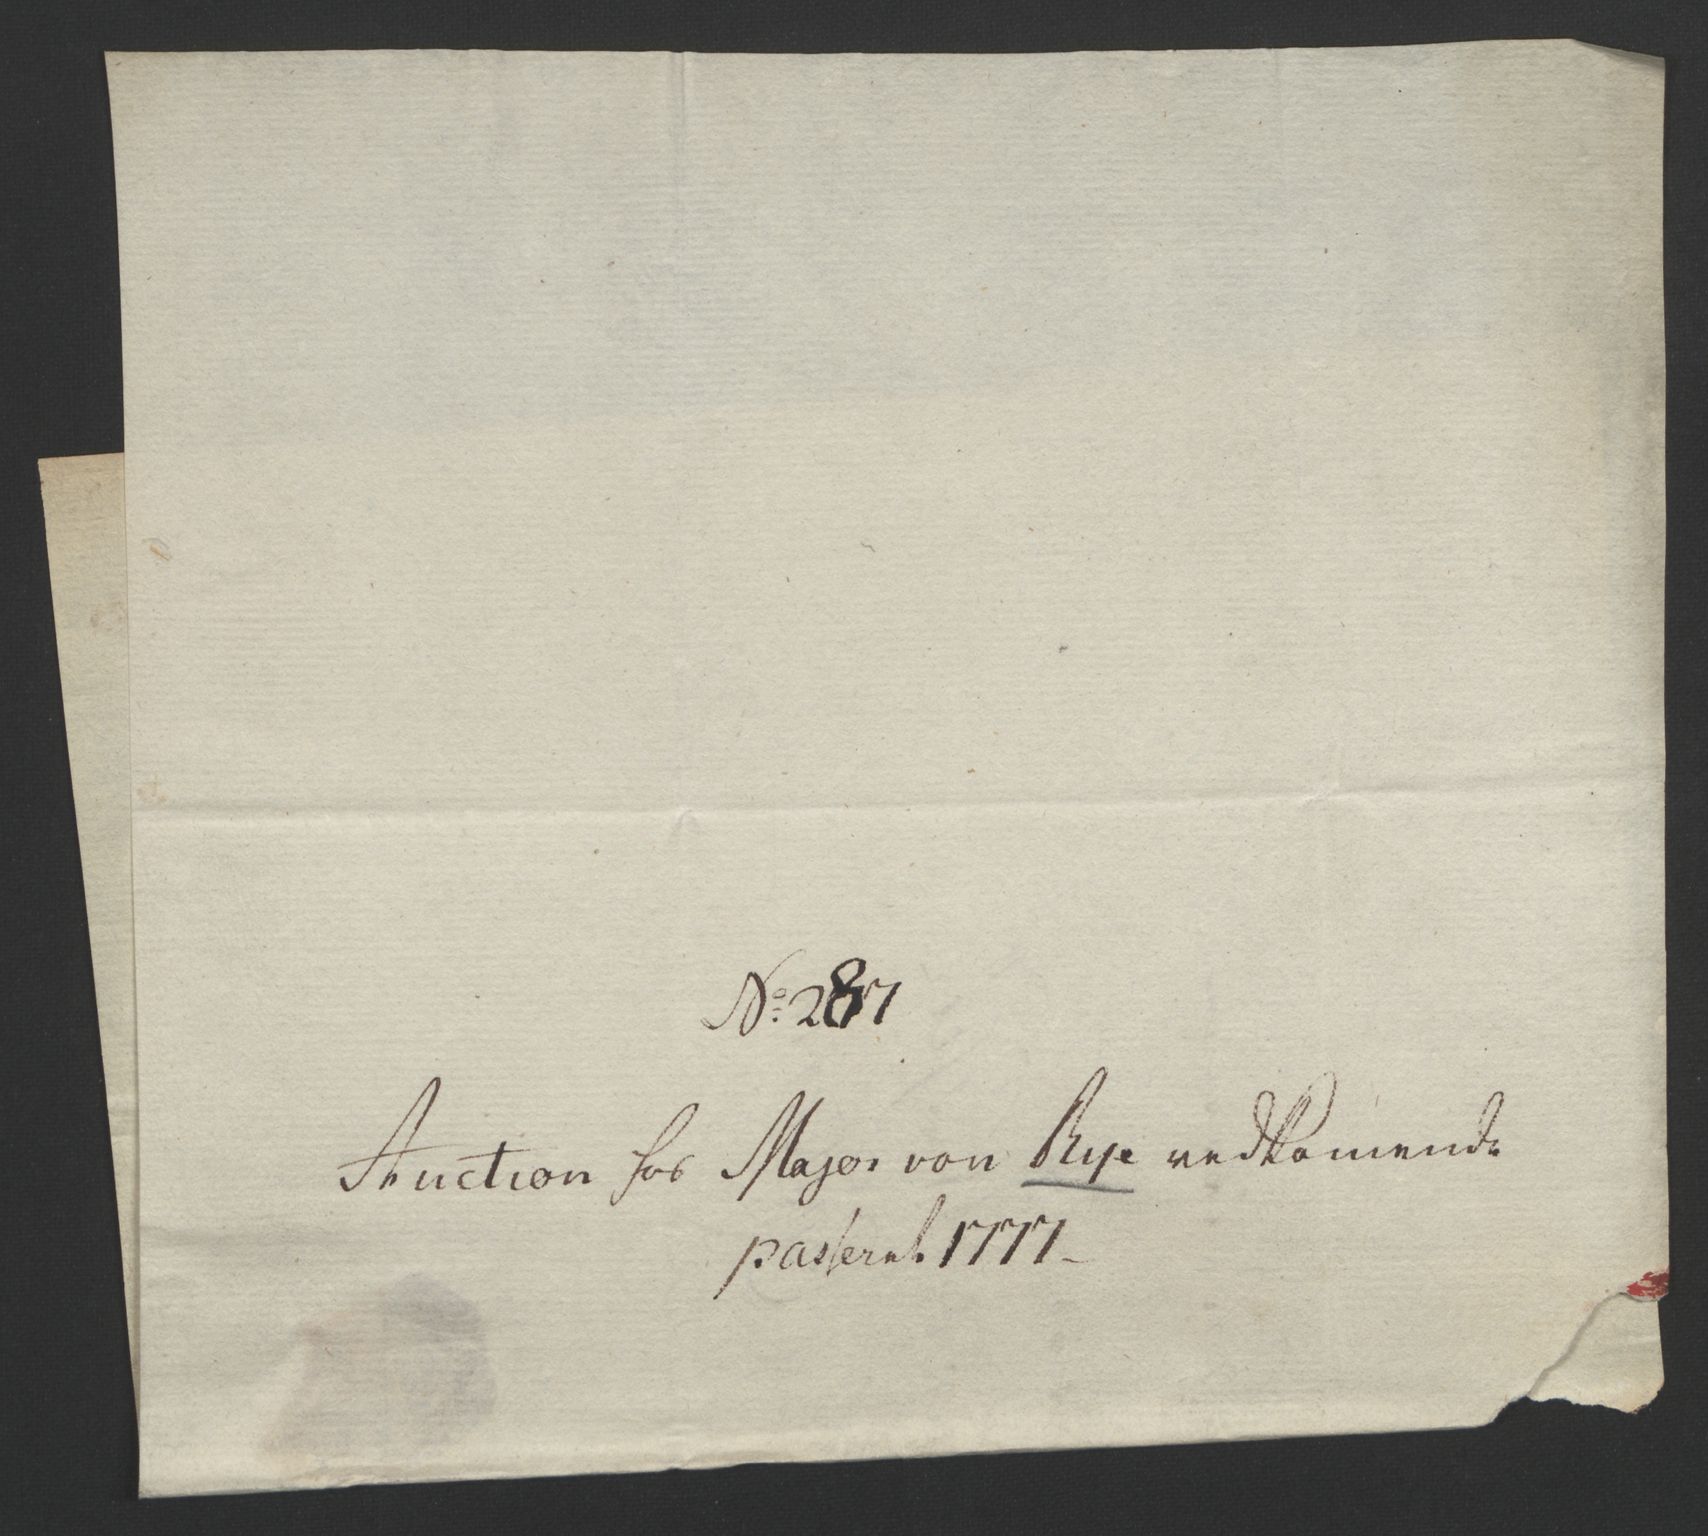 No: 287
Auction for Major von Rye vedkomende
passeret 1777-